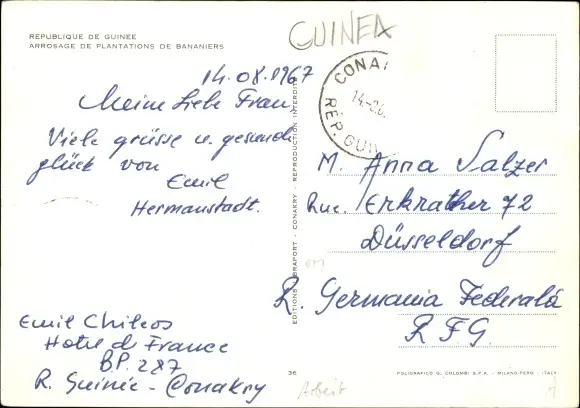 REPUBLIQUE DE GUINEE
ARROSAGE DE PLANTATIONS DE BANANIERS
GUINEA
14.08.1967
Meine Liebe Frau,
Viele grüsse u. gesund
glück von
Emil
Hermanstadt.
CONA
14.-
RÉP. GUI
M. Anna Salzer
Rue. Erkrather 72
Düsseldorf
R Germania Federală
R.F.G.
Emil Chileos
Hotel de France
B.P. 287
R. Guinée - Conakry
EDITIONS BRAPORT - CONAKRY - REPRODUCTION INTERDITE
36
POLIGRAFICO G. COLOMBI S.P.A. - MILANO-PERO - ITALY
Arbeit